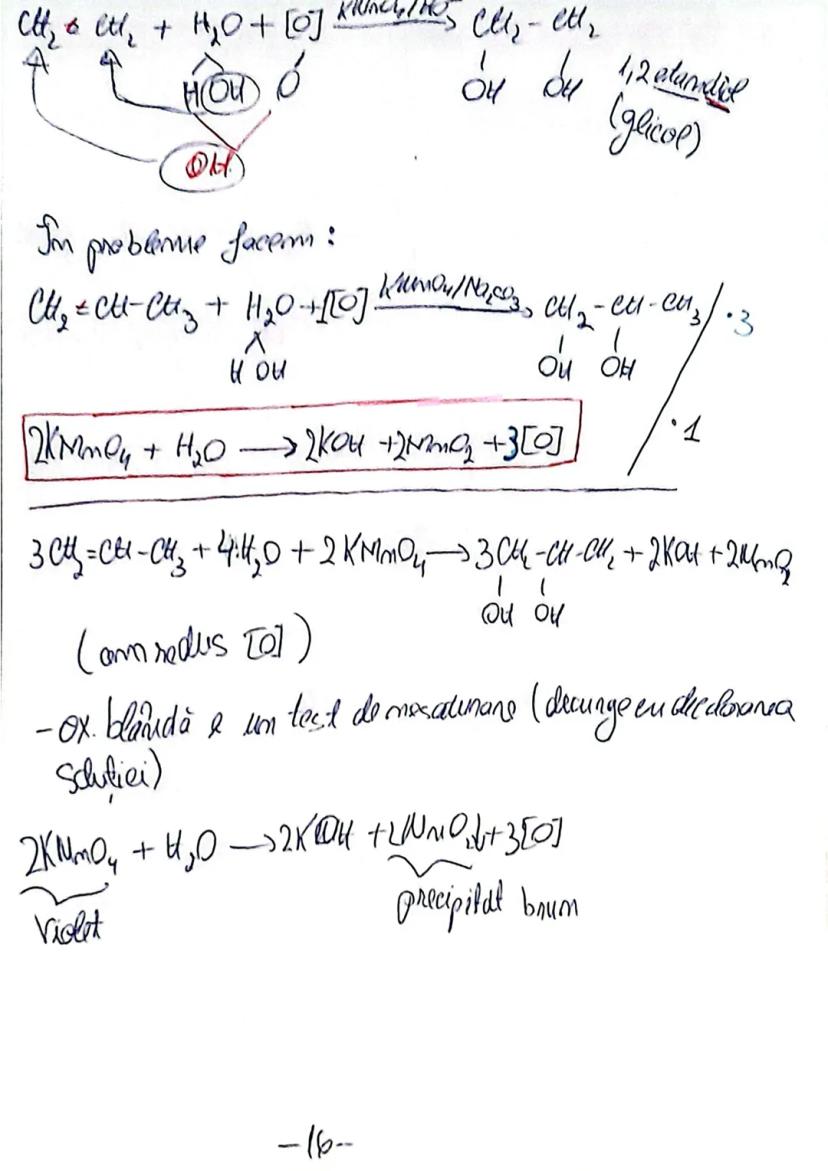 CH₂ = CH₂ + H₂O + [O] → CH₂ - CH₂
H OH O OH OH 1,2 etandiol
(glicol)
OH
În probleme facem:
CH₂=CH-CH₃ + H₂O + [O] KMnO₄/Na₂CO₃ → CH₂-CH-CH₃ / ·3
H OH OH OH
2KMnO₄ + H₂O → 2KOH + 2MnO₂ + 3[O] ·1
3CH₂=CH-CH₃ + 4H₂O + 2KMnO₄ → 3CH₂-CH-CH₂ + 2KOH + 2MnO₂
OH OH
(am redus [O])
- ox. blândă e un test de nesaturare (decurge cu decolorarea
soluției)
2KMnO₄ + H₂O → 2KOH + 2MnO₂↓ + 3[O]
Violet precipitat brun
-16-